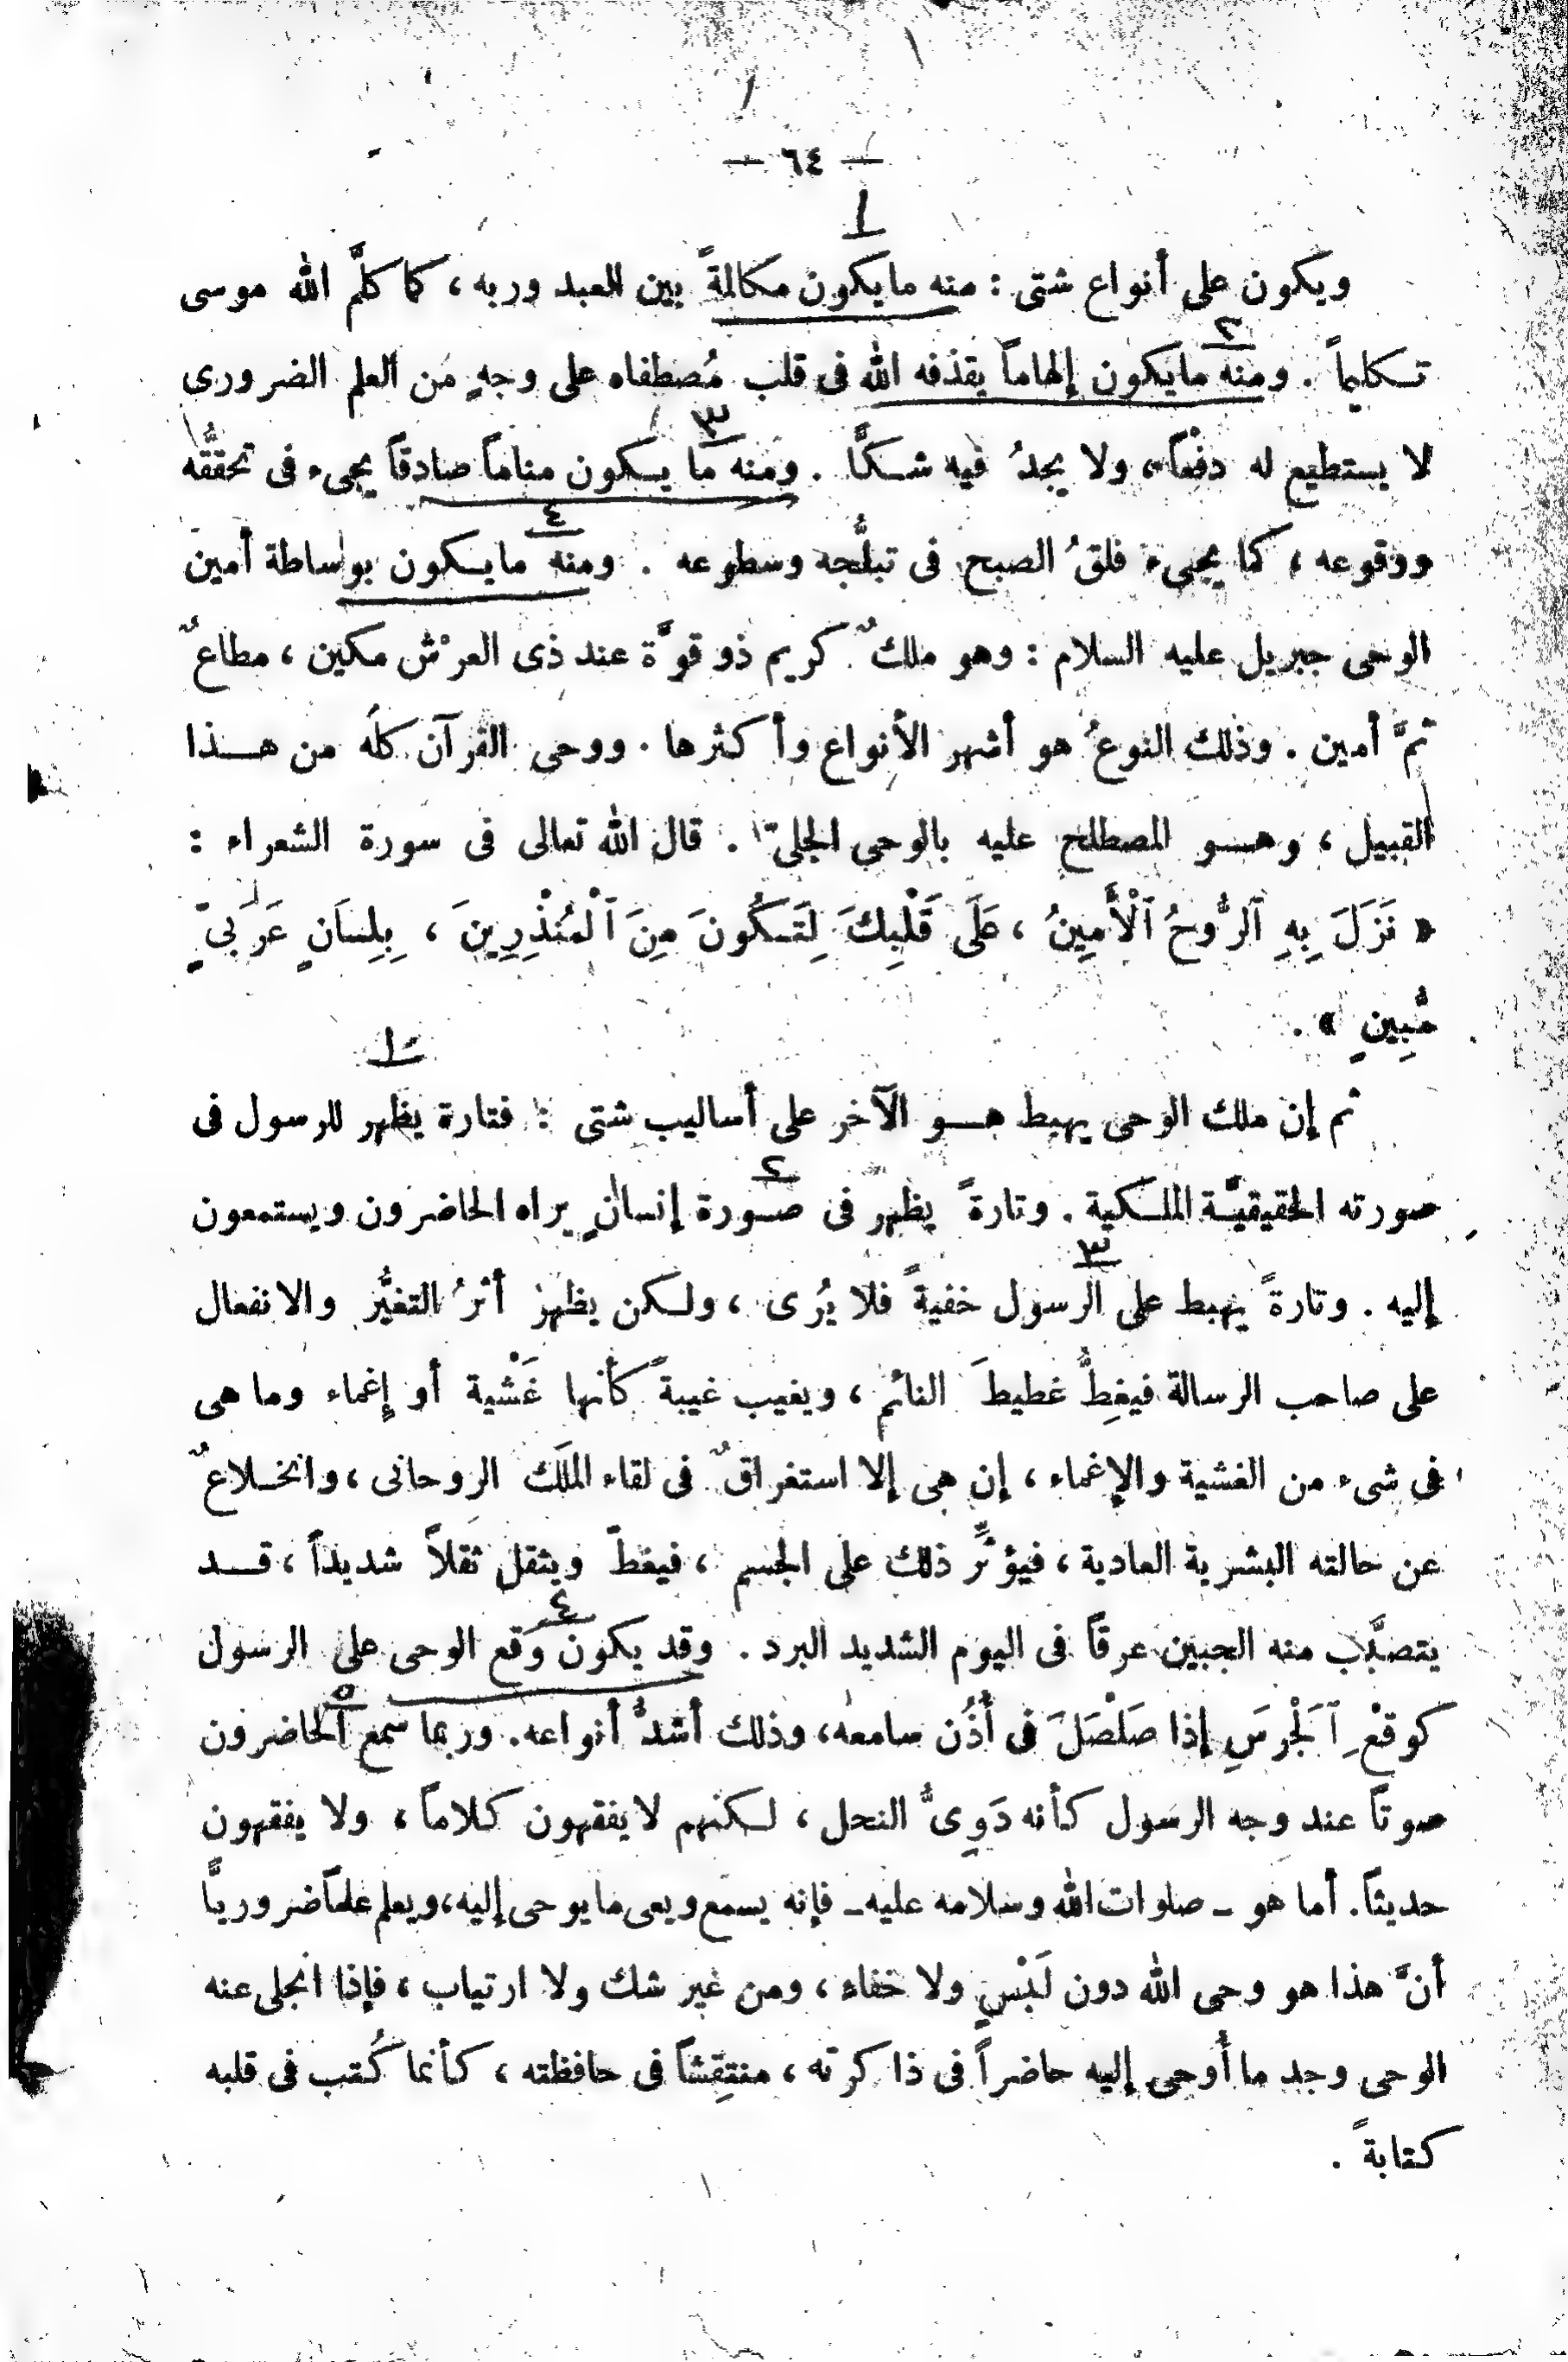 — ٦٤ —
١
ويكون على أنواع شتى : منه مايكون مكالمةً بين العبد وربه ، كما كلَّم الله موسى
٢
تكليماً . ومنه مايكون إلهاماً يقذفه الله فى قلب مُصطفاه على وجهٍ من العلم الضرورى
٣
لا يستطيع له دفعاً ، ولا يجدُ فيه شكًّا . ومنه ما يكون مناماً صادقاً يجىء فى تحقُّقه
٤
ووقوعه ، كما يجىء فلقُ الصبح فى تبلُّجه وسطوعه . ومنه مايكون بواساطة أمين
الوحى جبريل عليه السلام : وهو ملكٌ كريم ذو قوَّة عند ذى العرْش مكين ، مطاعٌ
ثمَّ أمين . وذلك النوعُ هو أشهر الأنواع وأكثرها . ووحى القرآن كلُه من هذا
القبيل ، وهو المصطلح عليه بالوحى الجلىّ . قال الله تعالى فى سورة الشعراء :
« نَزَلَ بِهِ ٱلرُّوحُ ٱلْأَمِينُ ، عَلَى قَلْبِكَ لِتَكُونَ مِنَ ٱلْمُنْذِرِينَ ، بِلِسَانٍ عَرَبىٍّ
مُّبِينٍ » .
١
ثم إن ملك الوحى يهبط هو الآخر على أساليب شتى : فتارة يظهر للرسول فى
٢
صورته الحقيقيَّة الملكية . وتارةً يظهر فى صورة إنسانٍ يراه الحاضرون ويستمعون
٣
إليه . وتارةً يهبط على الرسول خفيةً فلا يُرى ، ولكن يظهر أثرُ التغيُّر والانفعال
على صاحب الرسالة فيغِطُّ غطيطَ النائم ، ويغيب غيبةً كأنها غَشْية أو إغماء وما هى
فى شىء من الغشية والإغماء ، إن هى إلا استغراقٌ فى لقاء الملَك الروحانى ، وانخلاعٌ
عن حالته البشرية العادية ، فيؤثِّر ذلك على الجسم ، فيغطّ ويثقل ثقلاً شديداً ، قد
٤
يتصبَّب منه الجبين عرقاً فى اليوم الشديد البرد . وقد يكون وَقع الوحى على الرسول
٥
كوقْعِ ٱلْجَرسَ إذا صَلْصَلَ فى أُذُن سامعه ، وذلك أشدُّ أنواعه . وربما سمع الحاضرون
صوتاً عند وجه الرسول كأنه دَوِىُّ النحل ، لكنهم لايفقهون كلاماً ، ولا يفقهون
حديثاً . أما هو ـ صلوات الله وسلامه عليه ـ فإنه يسمع ويعى مايوحى إليه ، ويعلم علماً ضروريًّا
أنَّ هذا هو وحى الله دون لَبْسٍ ولا خفاء ، ومن غير شك ولا ارتياب ، فإذا انجلى عنه
الوحى وجد ما أُوحى إليه حاضراً فى ذاكرته ، منتقِشاً فى حافظته ، كأنما كُتب فى قلبه
كتابةً .